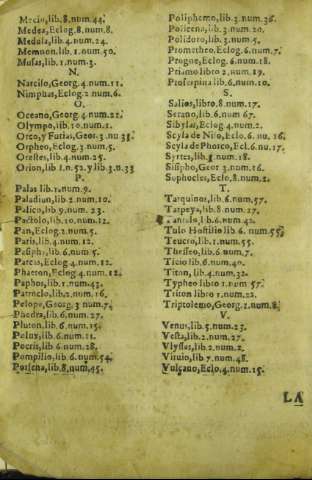 Mecio, lib.8.num.44.
Medea, Eclog.8.num.8.
Medusa, lib.4.num.24.
Memnon, lib.1.num.50.
Musas, lib.1.num.3.
N.
Narciso, Georg.4.num.11.
Nimphas, Eclog.2.num.6.
O.
Oceano, Georg.4.num.22.
Olympo, lib.10.num.1.
Orco, y Furias, Geor.3.nu 33.
Orpheo, Eclog.3.num.5.
Orestes, lib.4.num.25.
Orion, lib 1.n.52.y lib.3.n.33
P.
Palas lib.1.num.9.
Paladiun, lib.2.num.10.
Palico, lib 9.num. 23.
Pactolo, lib.10.num.12.
Pan, Eclog.2.num.5.
Paris, lib.4.num. 12.
Pasiphe, lib.6.num.5.
Parcas, Eclog.4.num.12.
Phaeton, Eclog.4.num.12.
Paphos, lib.1.num.43.
Patroclo, lib.2.num.16.
Pelope, Georg.3 num.74.
Phedra, lib.6.num.27.
Pluton, lib.6.num.15.
Polux, lib.6.num.11.
Pocris, lib 6.num.28.
Pompilio, lib 6.num.54.
Porsena, lib.8.num.45.
Poliphemo, lib.3.num.36.
Policena, lib.3.num.20.
Polidoro, lib.3.num.5.
Prometheo, Eclog.6.num.7.
Progne, Eclog.6.num.18.
Priamo libro 2.num.19.
Proserpina lib.6.num.10.
S.
Salios, libro.8.num.17.
Serano, lib.6 num 67.
Sibylas, Eclog.4.num.2.
Scyla de Niso, Eclo.6. nu. 16.
Scyla de Phorco, Ecl.6.nu.17.
Syrtes, lib.5 num.18.
Sisipho, Geor 3.num.16.
Suphocles, Eclo.8.num.2.
T.
Tarquinos, lib.6.num.57.
Tarpeya, lib.8.num.27.
Tantalo, lib.6.num.42.
Tulo Hostilio lib 6. num.55.
Teucro, lib.1.num.55.
Theseo, lib.6.num.7.
Ticio lib.6.num.40.
Titon, lib.4.num.32.
Typheo libro 1.num 57.
Triton libro 1.num.22.
Triptolemo, Georg.1.num.8.
V.
Venus, lib.5.num.23.
Vesta, lib.2.num.27.
Vlysses, lib.2.num.2.
Viruio, lib.7.num.48.
Vulcano, Eclo.4.num.15.
LA